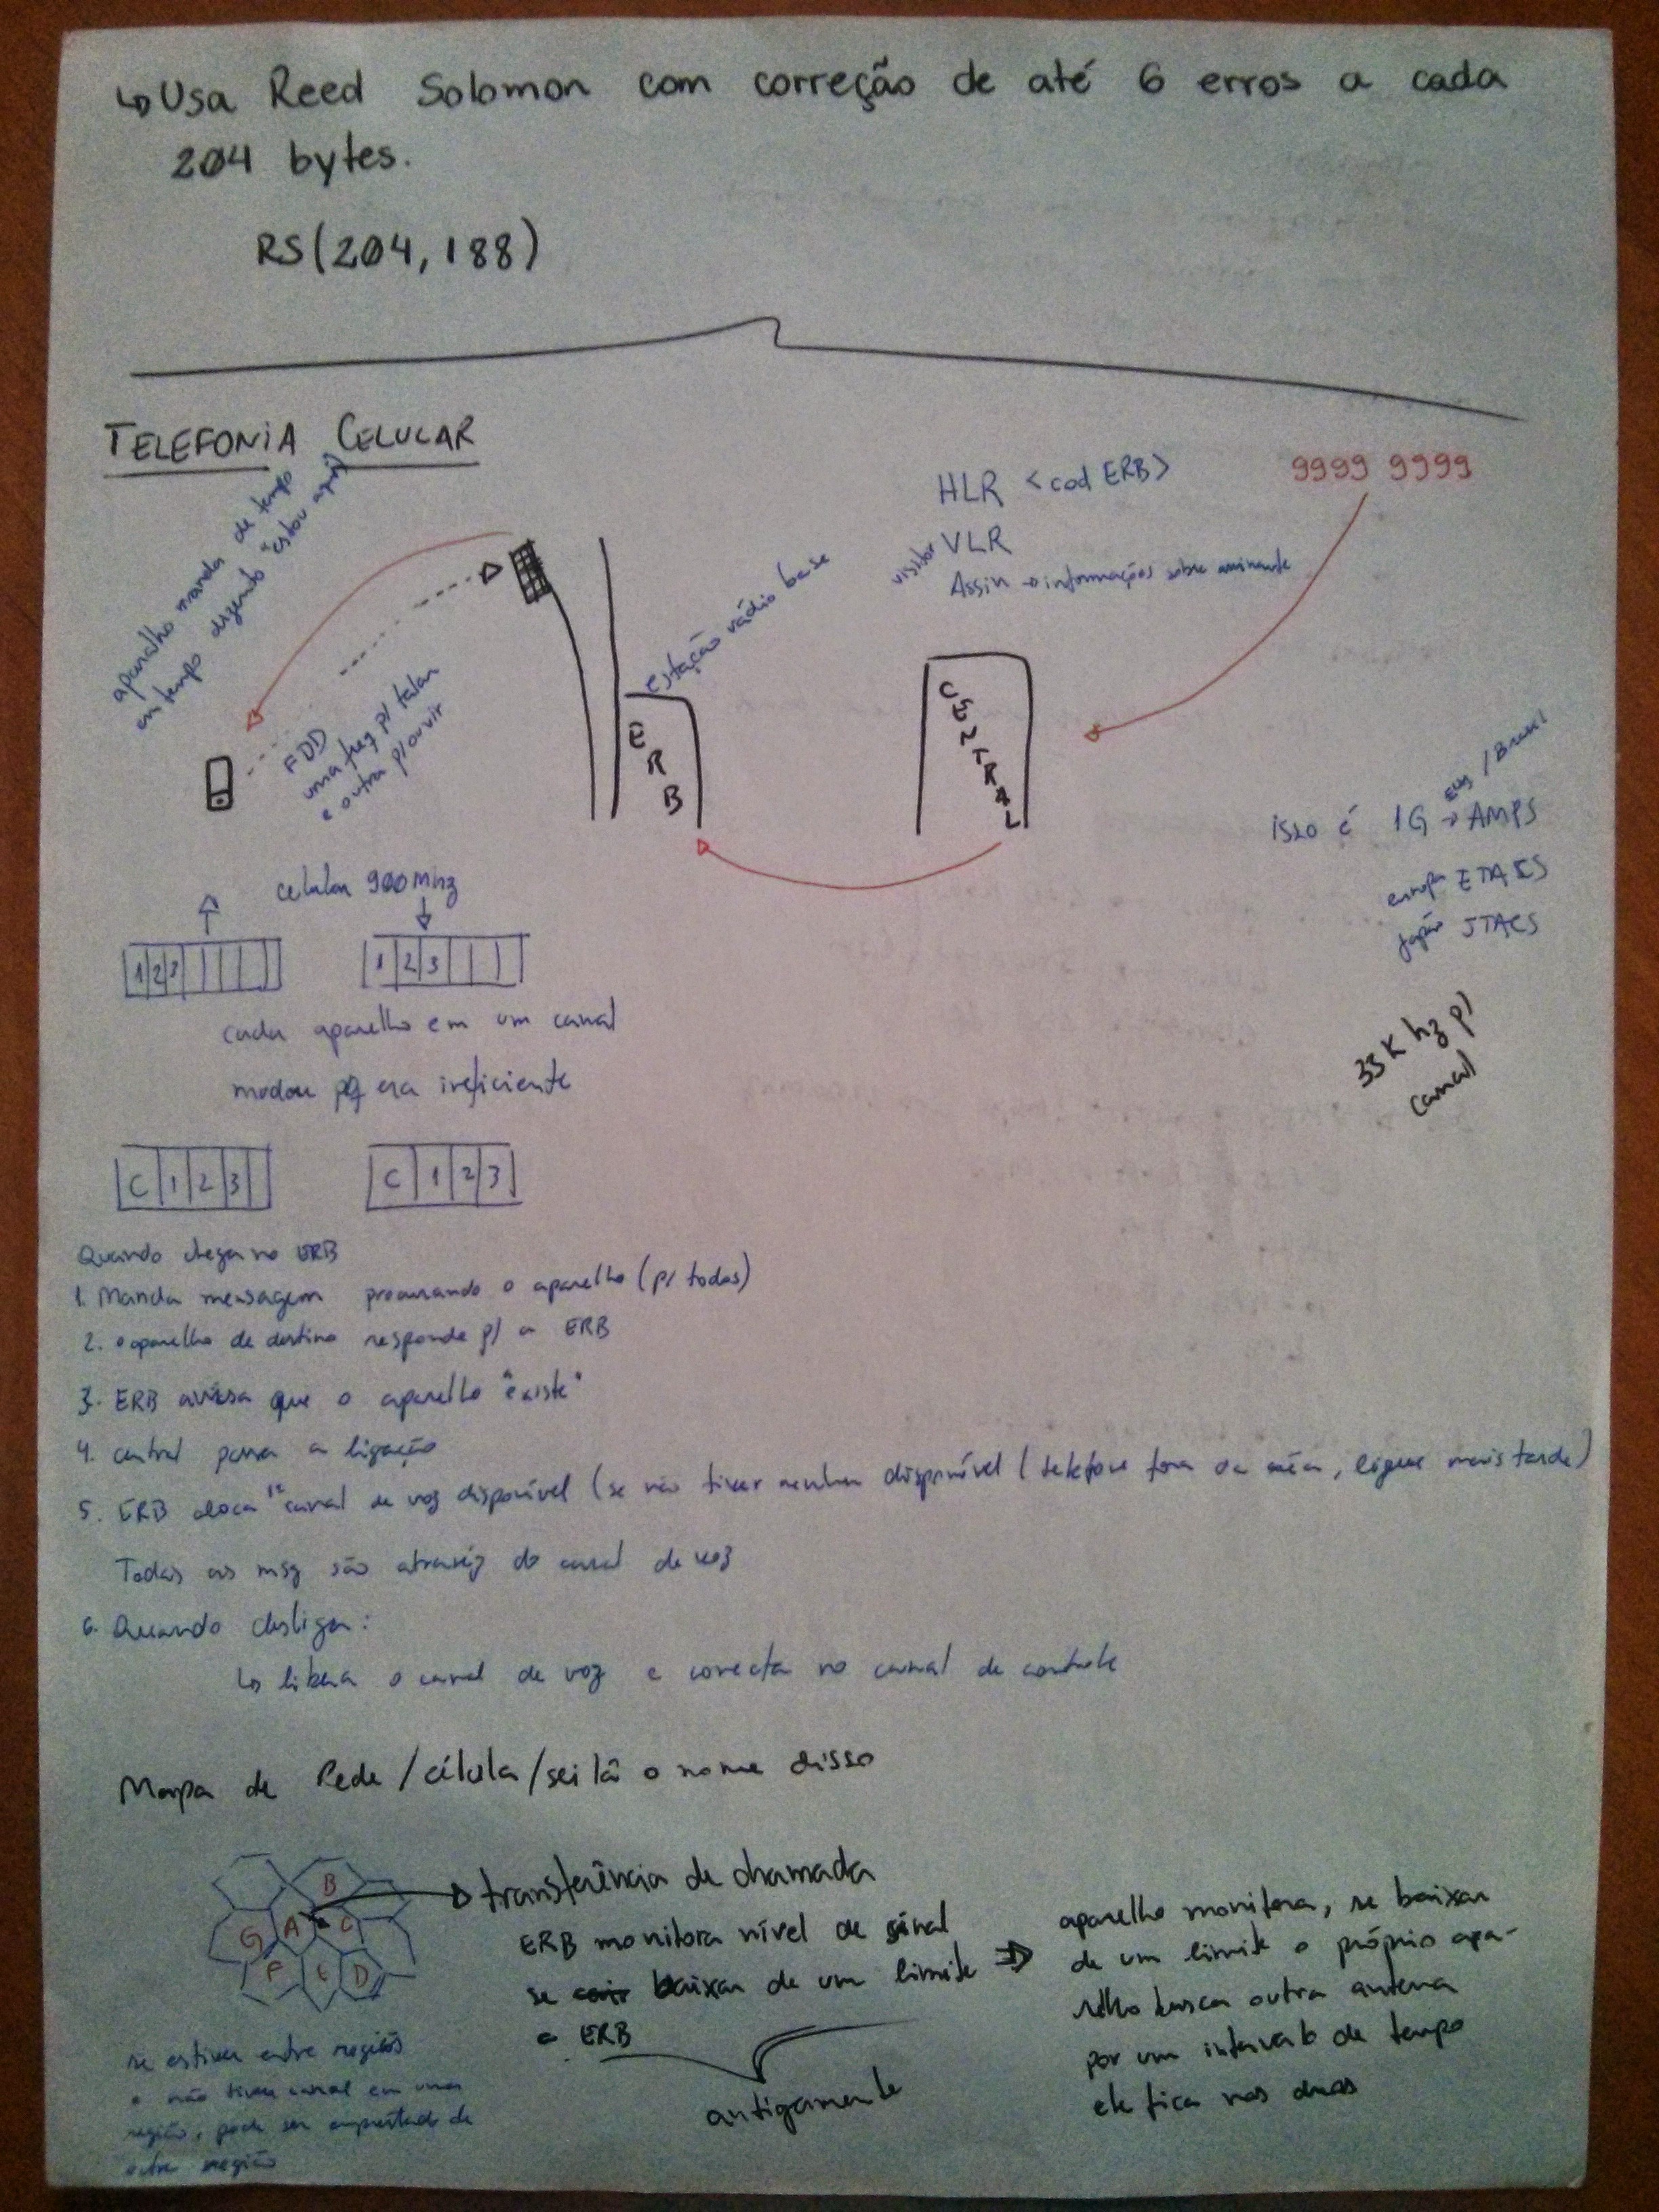 ↳ Usa Reed Solomon com correção de até 6 erros a cada
204 bytes.
RS(204,188)
TELEFONIA CELULAR
aparelho manda de tempo
em tempo dizendo "estou aqui"
HLR <cod ERB>
9999 9999
visitor VLR
Assin → informações sobre assinante
estação rádio base
FDD
uma freq p/ falar
e outra p/ ouvir
ERB
CENTRAL
isso é 1G → AMPS
EUA / Brasil
europa ETACS
Japão JTACS
33K hz p/
canal
celular 900Mhz
1 2 3
1 2 3
cada aparelho em um canal
mudou pq era ineficiente
C 1 2 3
C 1 2 3
Quando chega no ERB
1. Manda mensagem procurando o aparelho (p/ todos)
2. o aparelho de destino responde p/ a ERB
3. ERB avisa que o aparelho "existe"
4. central passa a ligação
5. ERB aloca 1º canal de voz disponível (se não tiver nenhum disponível (telefone fora da área, ligue mais tarde)
Todas as msg são atravéz do canal de voz
6. Quando desliga:
↳ libera o canal de voz e conecta no canal de controle
Mapa de Rede/célula/sei lá o nome disso
B
G A C
F E D
→ transferência de chamada
ERB monitora nível de sinal
se baixar de um limite ⇒
a ERB
antigamente
aparelho monitora, se baixar
de um limite o próprio apa-
relho busca outra antena
por um intervalo de tempo
ele fica nas duas
se estiver entre regiões
e não tiver canal em uma
região, pode ser emprestado de
outra região